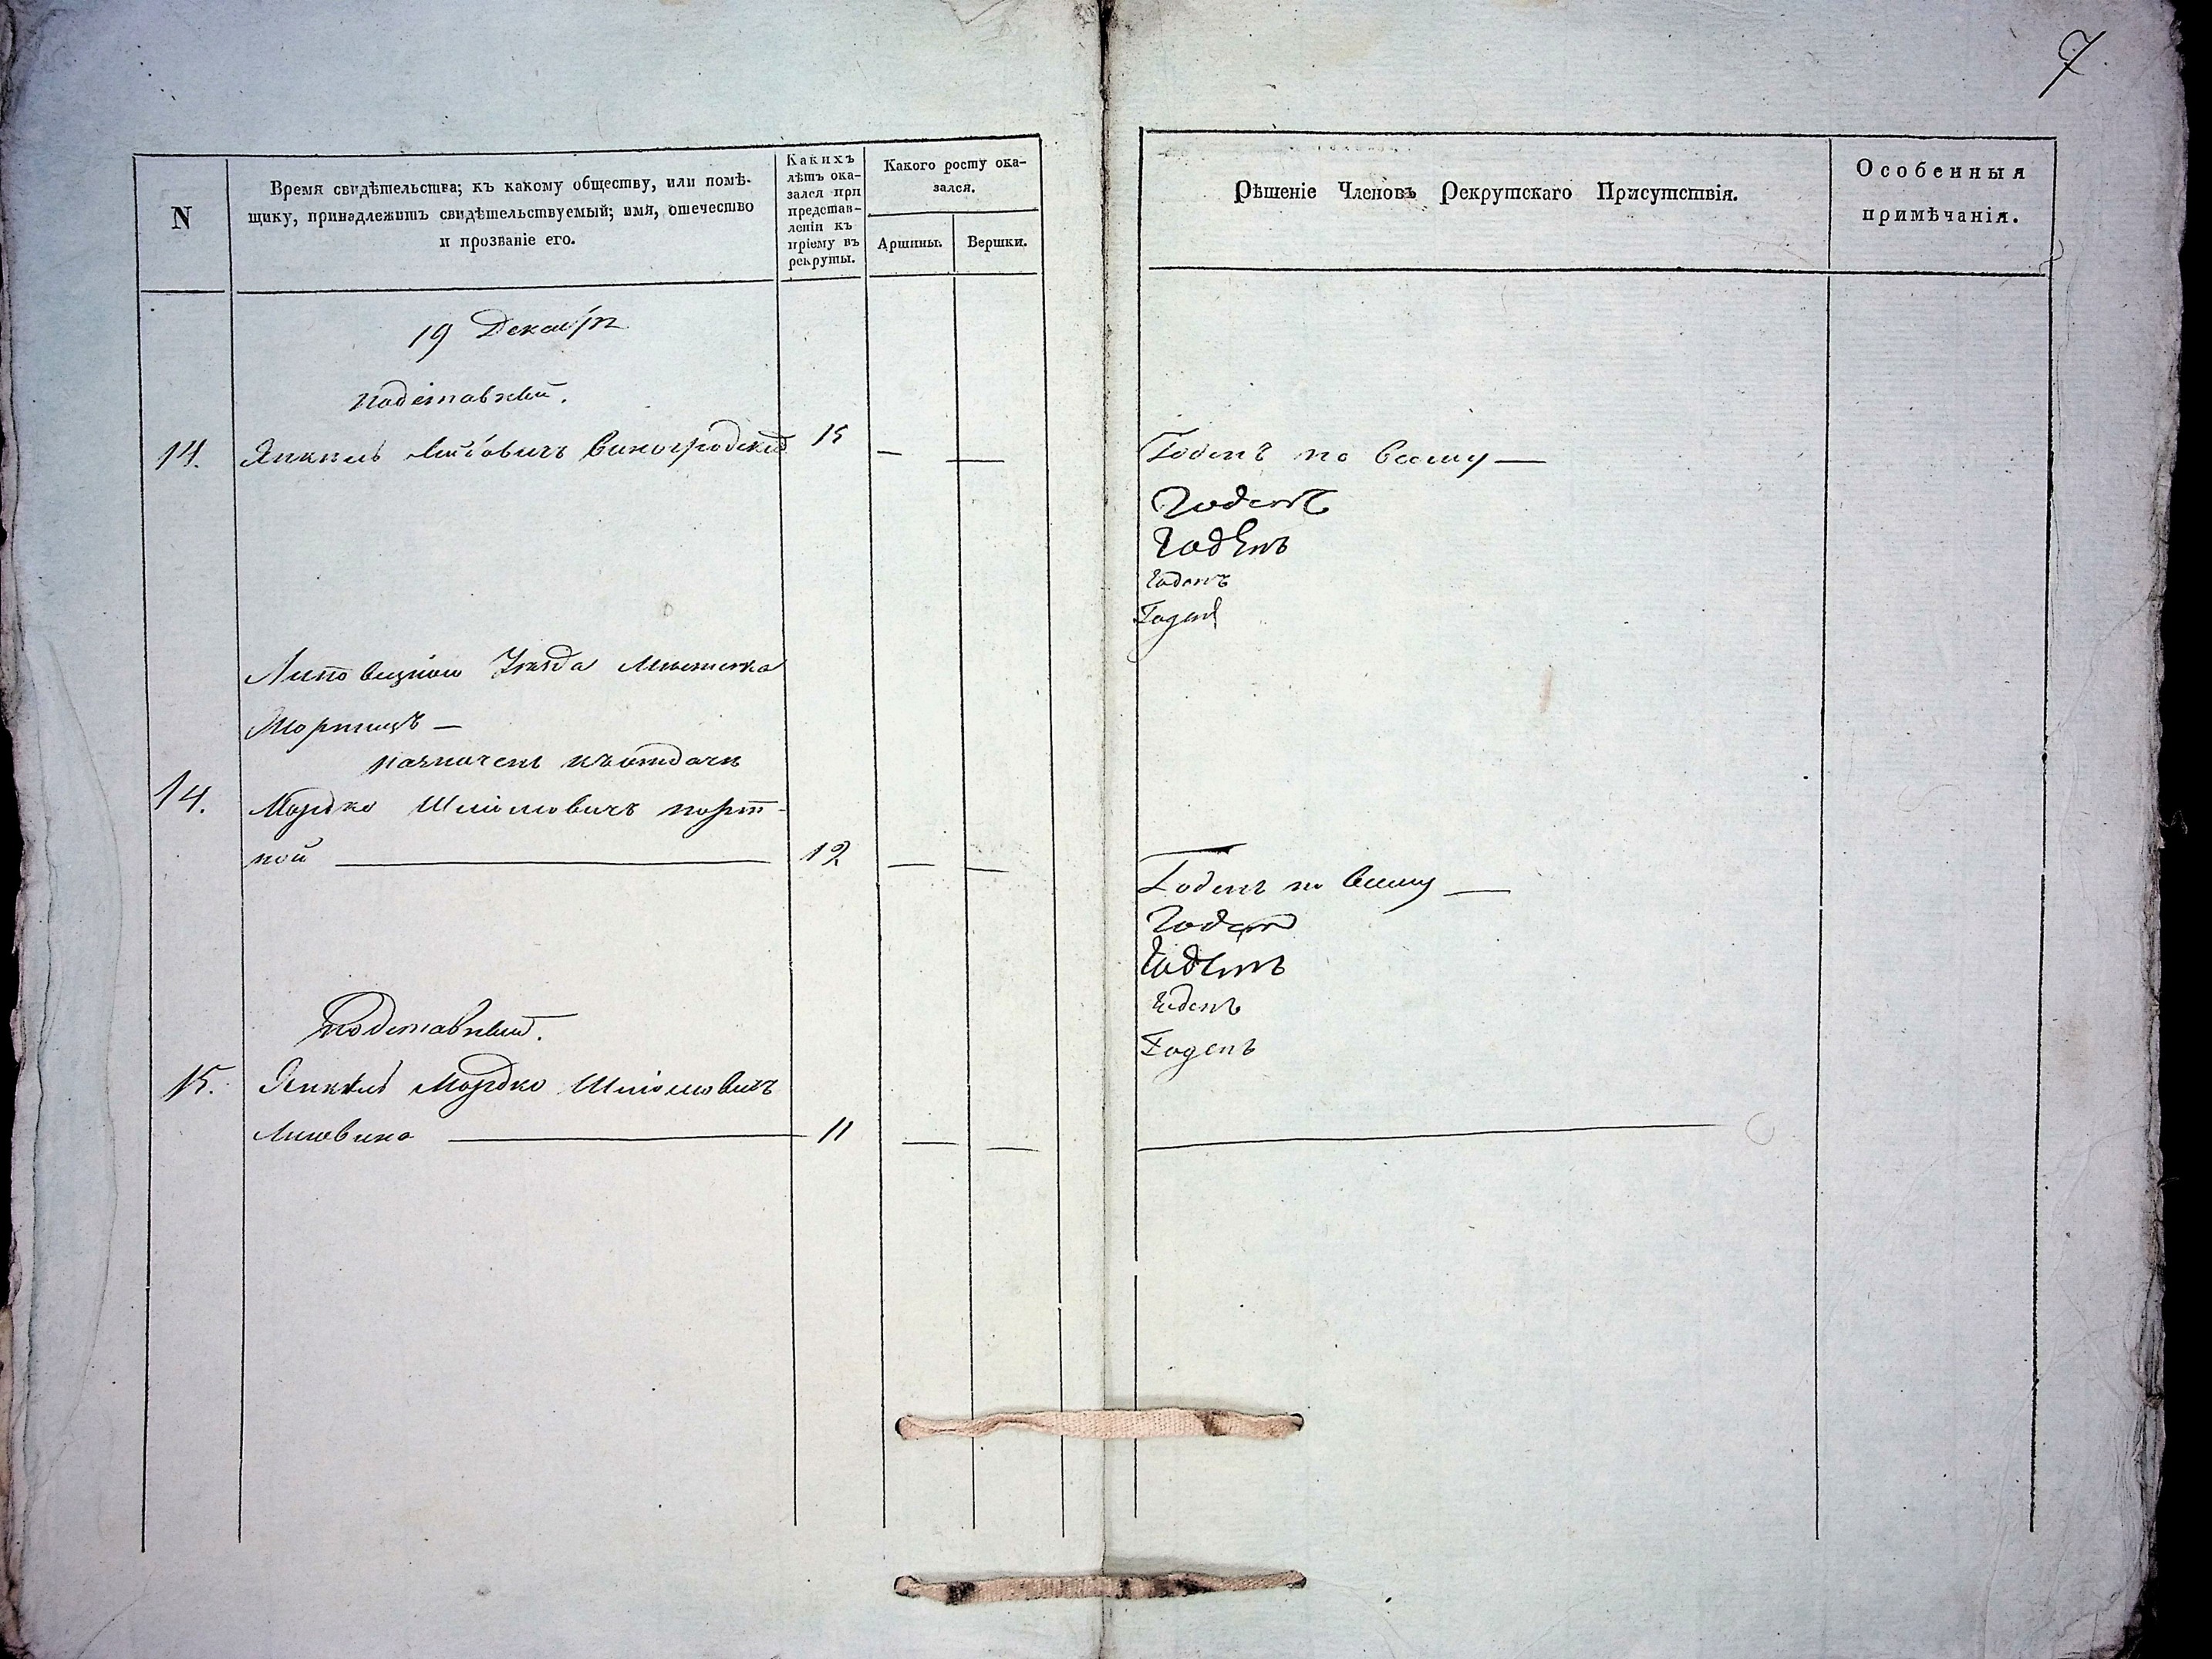 7
N
Время свидѣтельства; къ какому обществу, или помѣ-
щику, принадлежитъ свидѣтельствуемый; имя, отечество
и прозваніе его.
Какихъ
лѣтъ ока-
зался при
представ-
леніи къ
пріему въ
рекруты.
Какого росту ока-
зался.
Аршины.
Вершки.
Рѣшеніе Членовъ Рекрутскаго Присутствія.
Особенныя
примѣчанія.
19 Декабря
подставный.
14. Янкель Виногродскій 15 — —
Годенъ по всему —
Годенъ
Годенъ
Годенъ
Годенъ
Липовецкого Уезда Местечка
—
назначенъ къ отдаче
14. Мордко Шліомовичъ порт-
ной — 12 — —
Годенъ по всему —
Годенъ
Годенъ
Годенъ
Годенъ
подставный.
15. Янкель Мордко Шліомовичъ
— 11 — —